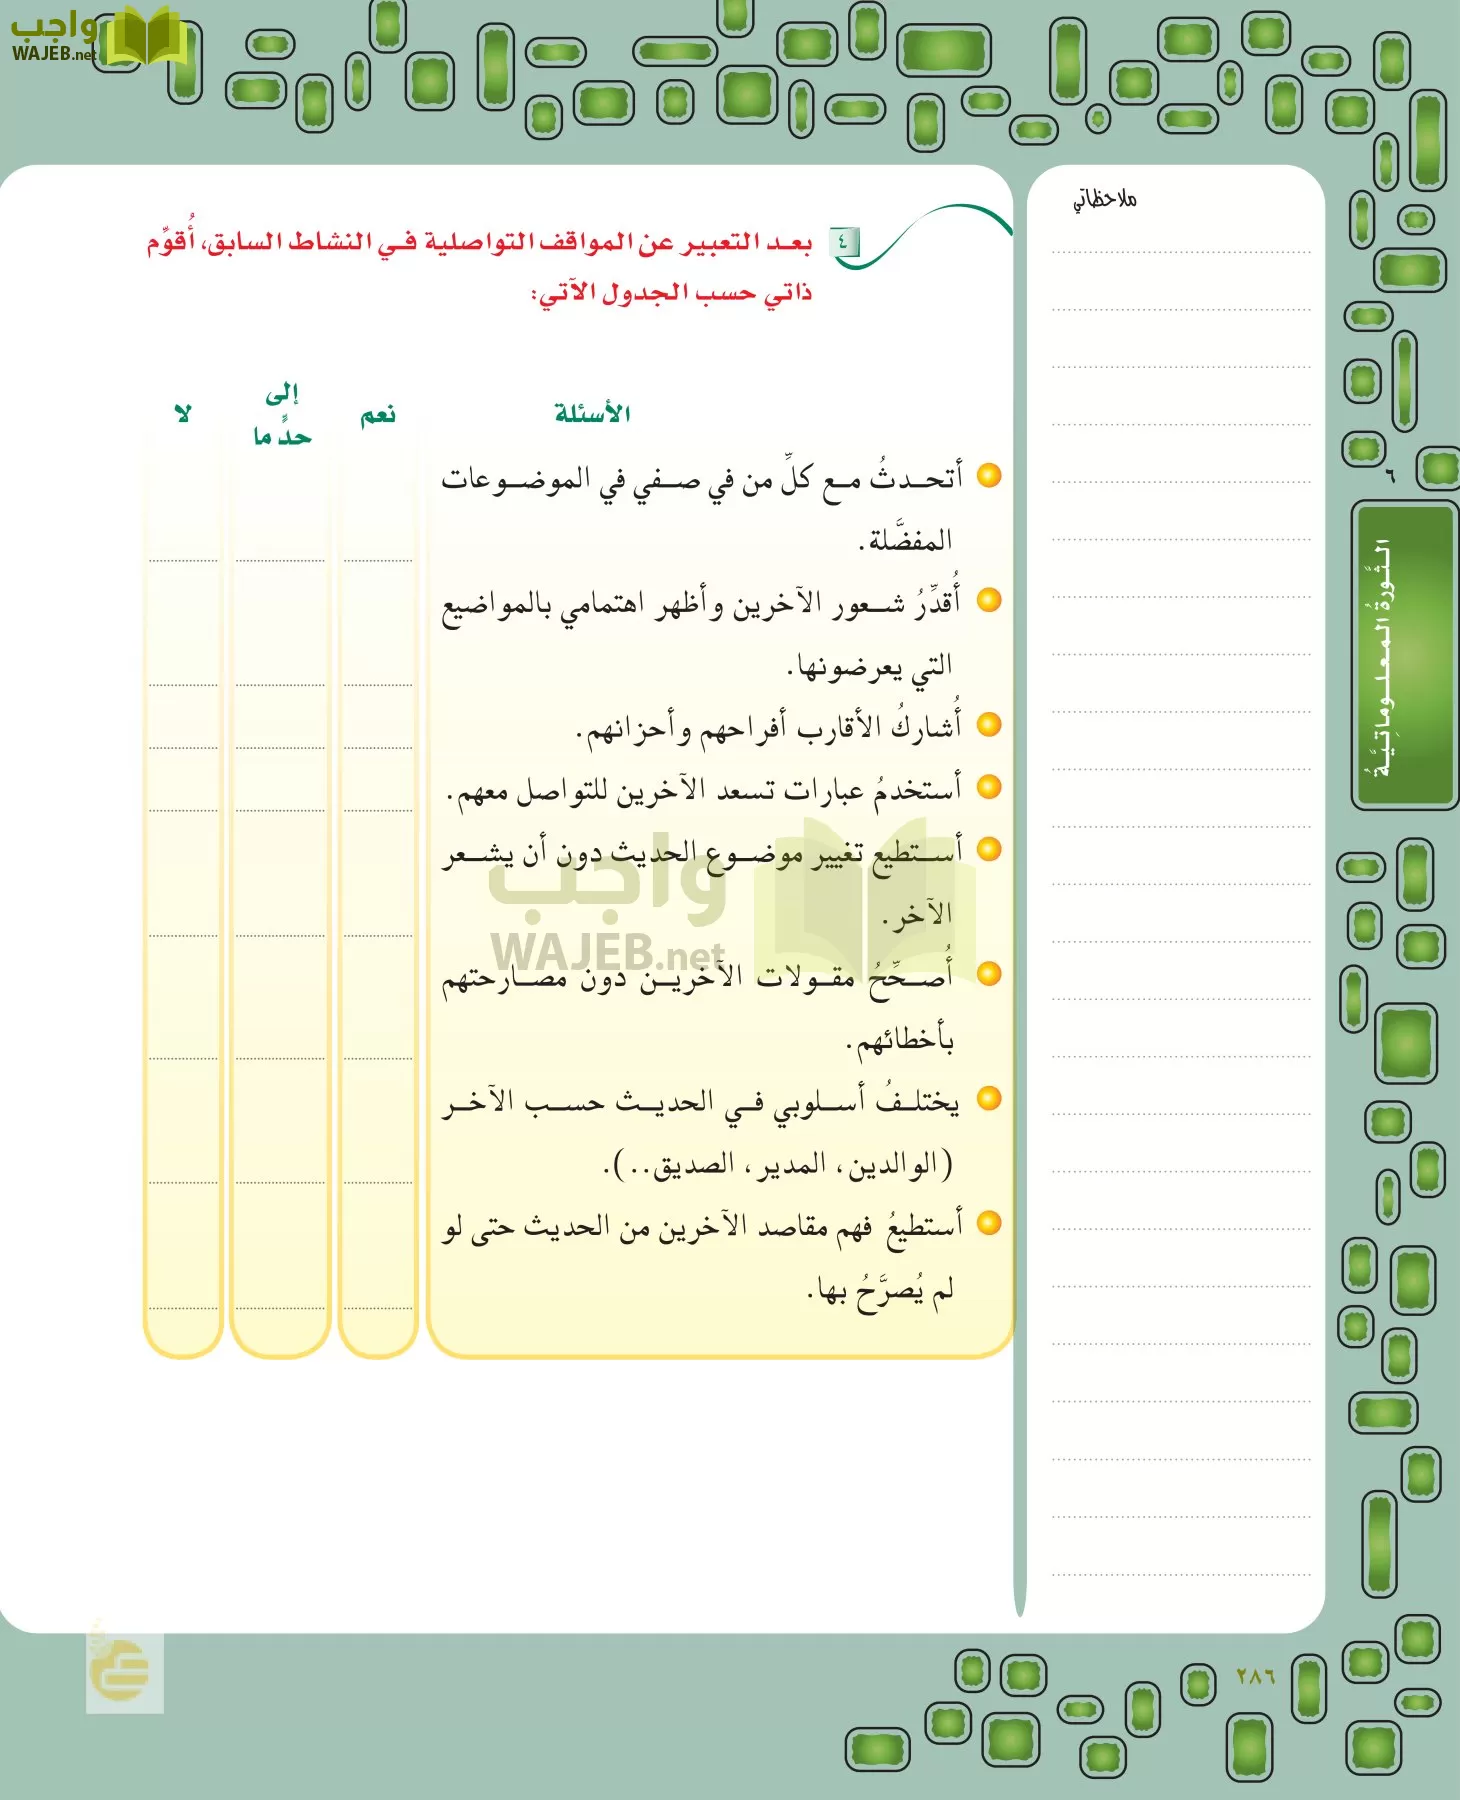 واجب
WAJEB.net
ملاحظاتي
٤
بعد التعبير عن المواقف التواصلية في النشاط السابق، أُقوِّم
ذاتي حسب الجدول الآتي:
الأسئلة
نعم
إلى
حدٍّ ما
لا
أتحدثُ مع كلِّ من في صفي في الموضوعات
المفضَّلة.
أُقدِّرُ شعور الآخرين وأظهر اهتمامي بالمواضيع
التي يعرضونها.
أُشاركُ الأقارب أفراحهم وأحزانهم.
أستخدمُ عبارات تسعد الآخرين للتواصل معهم.
أستطيع تغيير موضوع الحديث دون أن يشعر
الآخر.
واجب
WAJEB.net
أُصحِّحُ مقولات الآخرين دون مصارحتهم
بأخطائهم.
يختلفُ أسلوبي في الحديث حسب الآخر
(الوالدين، المدير، الصديق..).
أستطيعُ فهم مقاصد الآخرين من الحديث حتى لو
لم يُصرَّحُ بها.
٦
الثَّورةُ المعلوماتِيَّةُ
٢٨٦